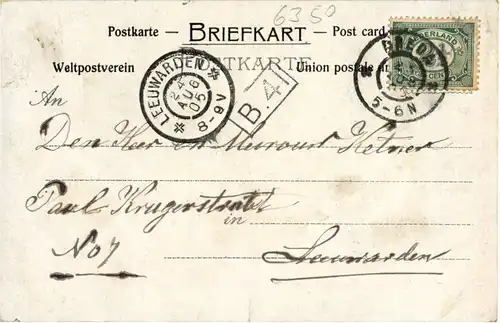 6350
Postkarte - BRIEFKART - Post card
POSTKARTE
Weltpostverein Union postale
LEEUWARDEN
24 AUG 05
8-9V
B.4
BREDA
5-6N
NEDERLAND
CENT
An
Den Heer en Mevrouw Ketner
Paul Krugerstraat
in
No 7 Leeuwarden